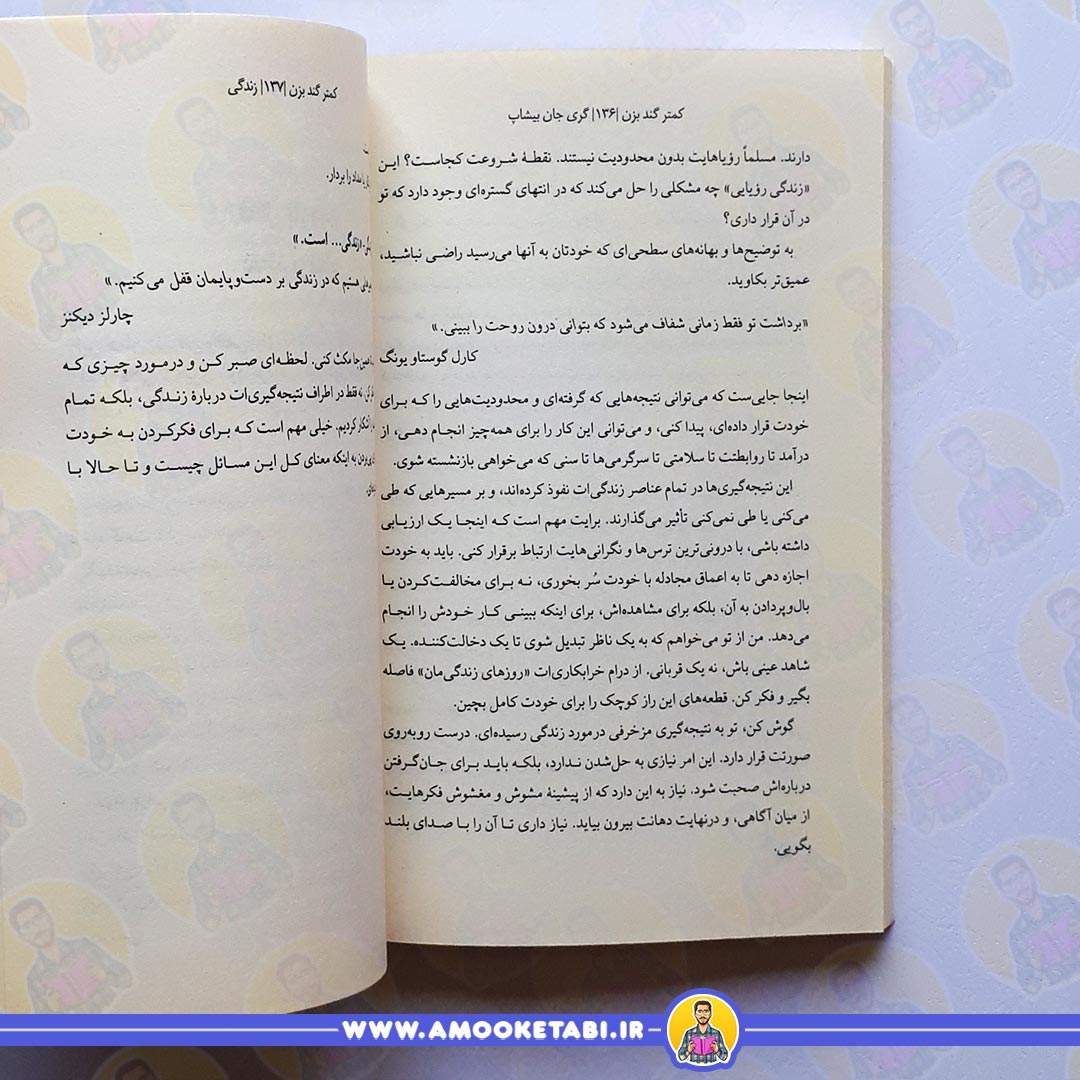 کمتر گند بزن |۱۳۶| گری جان بیشاپ
دارند. مسلماً رؤیاهایت بدون محدودیت نیستند. نقطهٔ شروعت کجاست؟ این
«زندگی رؤیایی» چه مشکلی را حل می‌کند که در انتهای گستره‌ای وجود دارد که تو
در آن قرار داری؟
به توضیح‌ها و بهانه‌های سطحی‌ای که خودتان به آنها می‌رسید راضی نباشید،
عمیق‌تر بکاوید.
«برداشت تو فقط زمانی شفاف می‌شود که بتوانی درون روحت را ببینی.»
کارل گوستاو یونگ
اینجا جایی‌ست که می‌توانی نتیجه‌هایی که گرفته‌ای و محدودیت‌هایی را که برای
خودت قرار داده‌ای، پیدا کنی، و می‌توانی این کار را برای همه‌چیز انجام دهی، از
درآمد تا روابطتت تا سلامتی تا سرگرمی‌ها تا سنی که می‌خواهی بازنشسته شوی.
این نتیجه‌گیری‌ها در تمام عناصر زندگی‌ات نفوذ کرده‌اند، و بر مسیرهایی که طی
می‌کنی یا طی نمی‌کنی تأثیر می‌گذارند. برایت مهم است که اینجا یک ارزیابی
داشته باشی، با درونی‌ترین ترس‌ها و نگرانی‌هایت ارتباط برقرار کنی. باید به خودت
اجازه دهی تا به اعماق مجادله با خودت سُر بخوری، نه برای مخالفت‌کردن یا
بال‌وپردادن به آن، بلکه برای مشاهده‌اش، برای اینکه ببینی کار خودش را انجام
می‌دهد. من از تو می‌خواهم که به یک ناظر تبدیل شوی تا یک دخالت‌کننده. یک
شاهد عینی باش، نه یک قربانی. از درام خرابکاری‌ات «روزهای زندگی‌مان» فاصله
بگیر و فکر کن. قطعه‌های این راز کوچک را برای خودت کامل بچین.
گوش کن، تو به نتیجه‌گیری مزخرفی درمورد زندگی رسیده‌ای. درست روبه‌روی
صورتت قرار دارد. این امر نیازی به حل‌شدن ندارد، بلکه باید برای جان‌گرفتن
درباره‌اش صحبت شود. نیاز به این دارد که از پیشینهٔ مشوش و مغشوش فکرهایت،
از میان آگاهی، و درنهایت دهانت بیرون بیاید. نیاز داری تا آن را با صدای بلند
بگویی.
کمتر گند بزن |۱۳۷| زندگی
را بردار.
زندگی... است.»
هستیم که در زندگی بر دست‌وپایمان قفل می‌کنیم.»
چارلز دیکنز
جا مکث کنی. لحظه‌ای صبر کن و درمورد چیزی که
نه فقط در اطراف نتیجه‌گیری‌ات دربارهٔ زندگی، بلکه تمام
آشکار کردیم. خیلی مهم است که برای فکرکردن به خودت
به اینکه معنای کل این مسائل چیست و تا حالا با
WWW.AMOOKETABI.IR